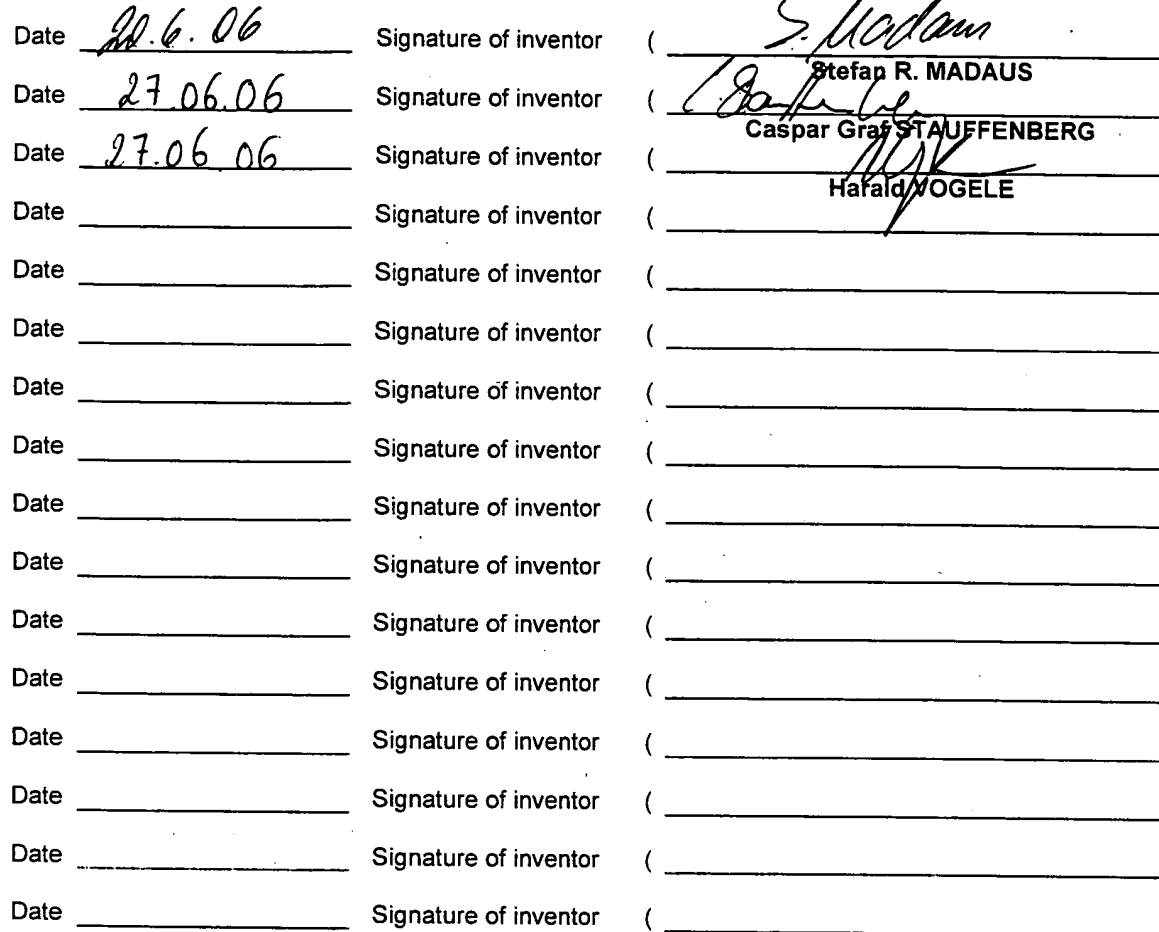 Date 20.6.06 Signature of inventor ( S. Madaus
Stefan R. MADAUS
Date 27.06.06 Signature of inventor (
Caspar Graf STAUFFENBERG
Date 27.06 06 Signature of inventor (
Harald VOGELE
Date Signature of inventor (
Date Signature of inventor (
Date Signature of inventor (
Date Signature of inventor (
Date Signature of inventor (
Date Signature of inventor (
Date Signature of inventor (
Date Signature of inventor (
Date Signature of inventor (
Date Signature of inventor (
Date Signature of inventor (
Date Signature of inventor (
Date Signature of inventor (